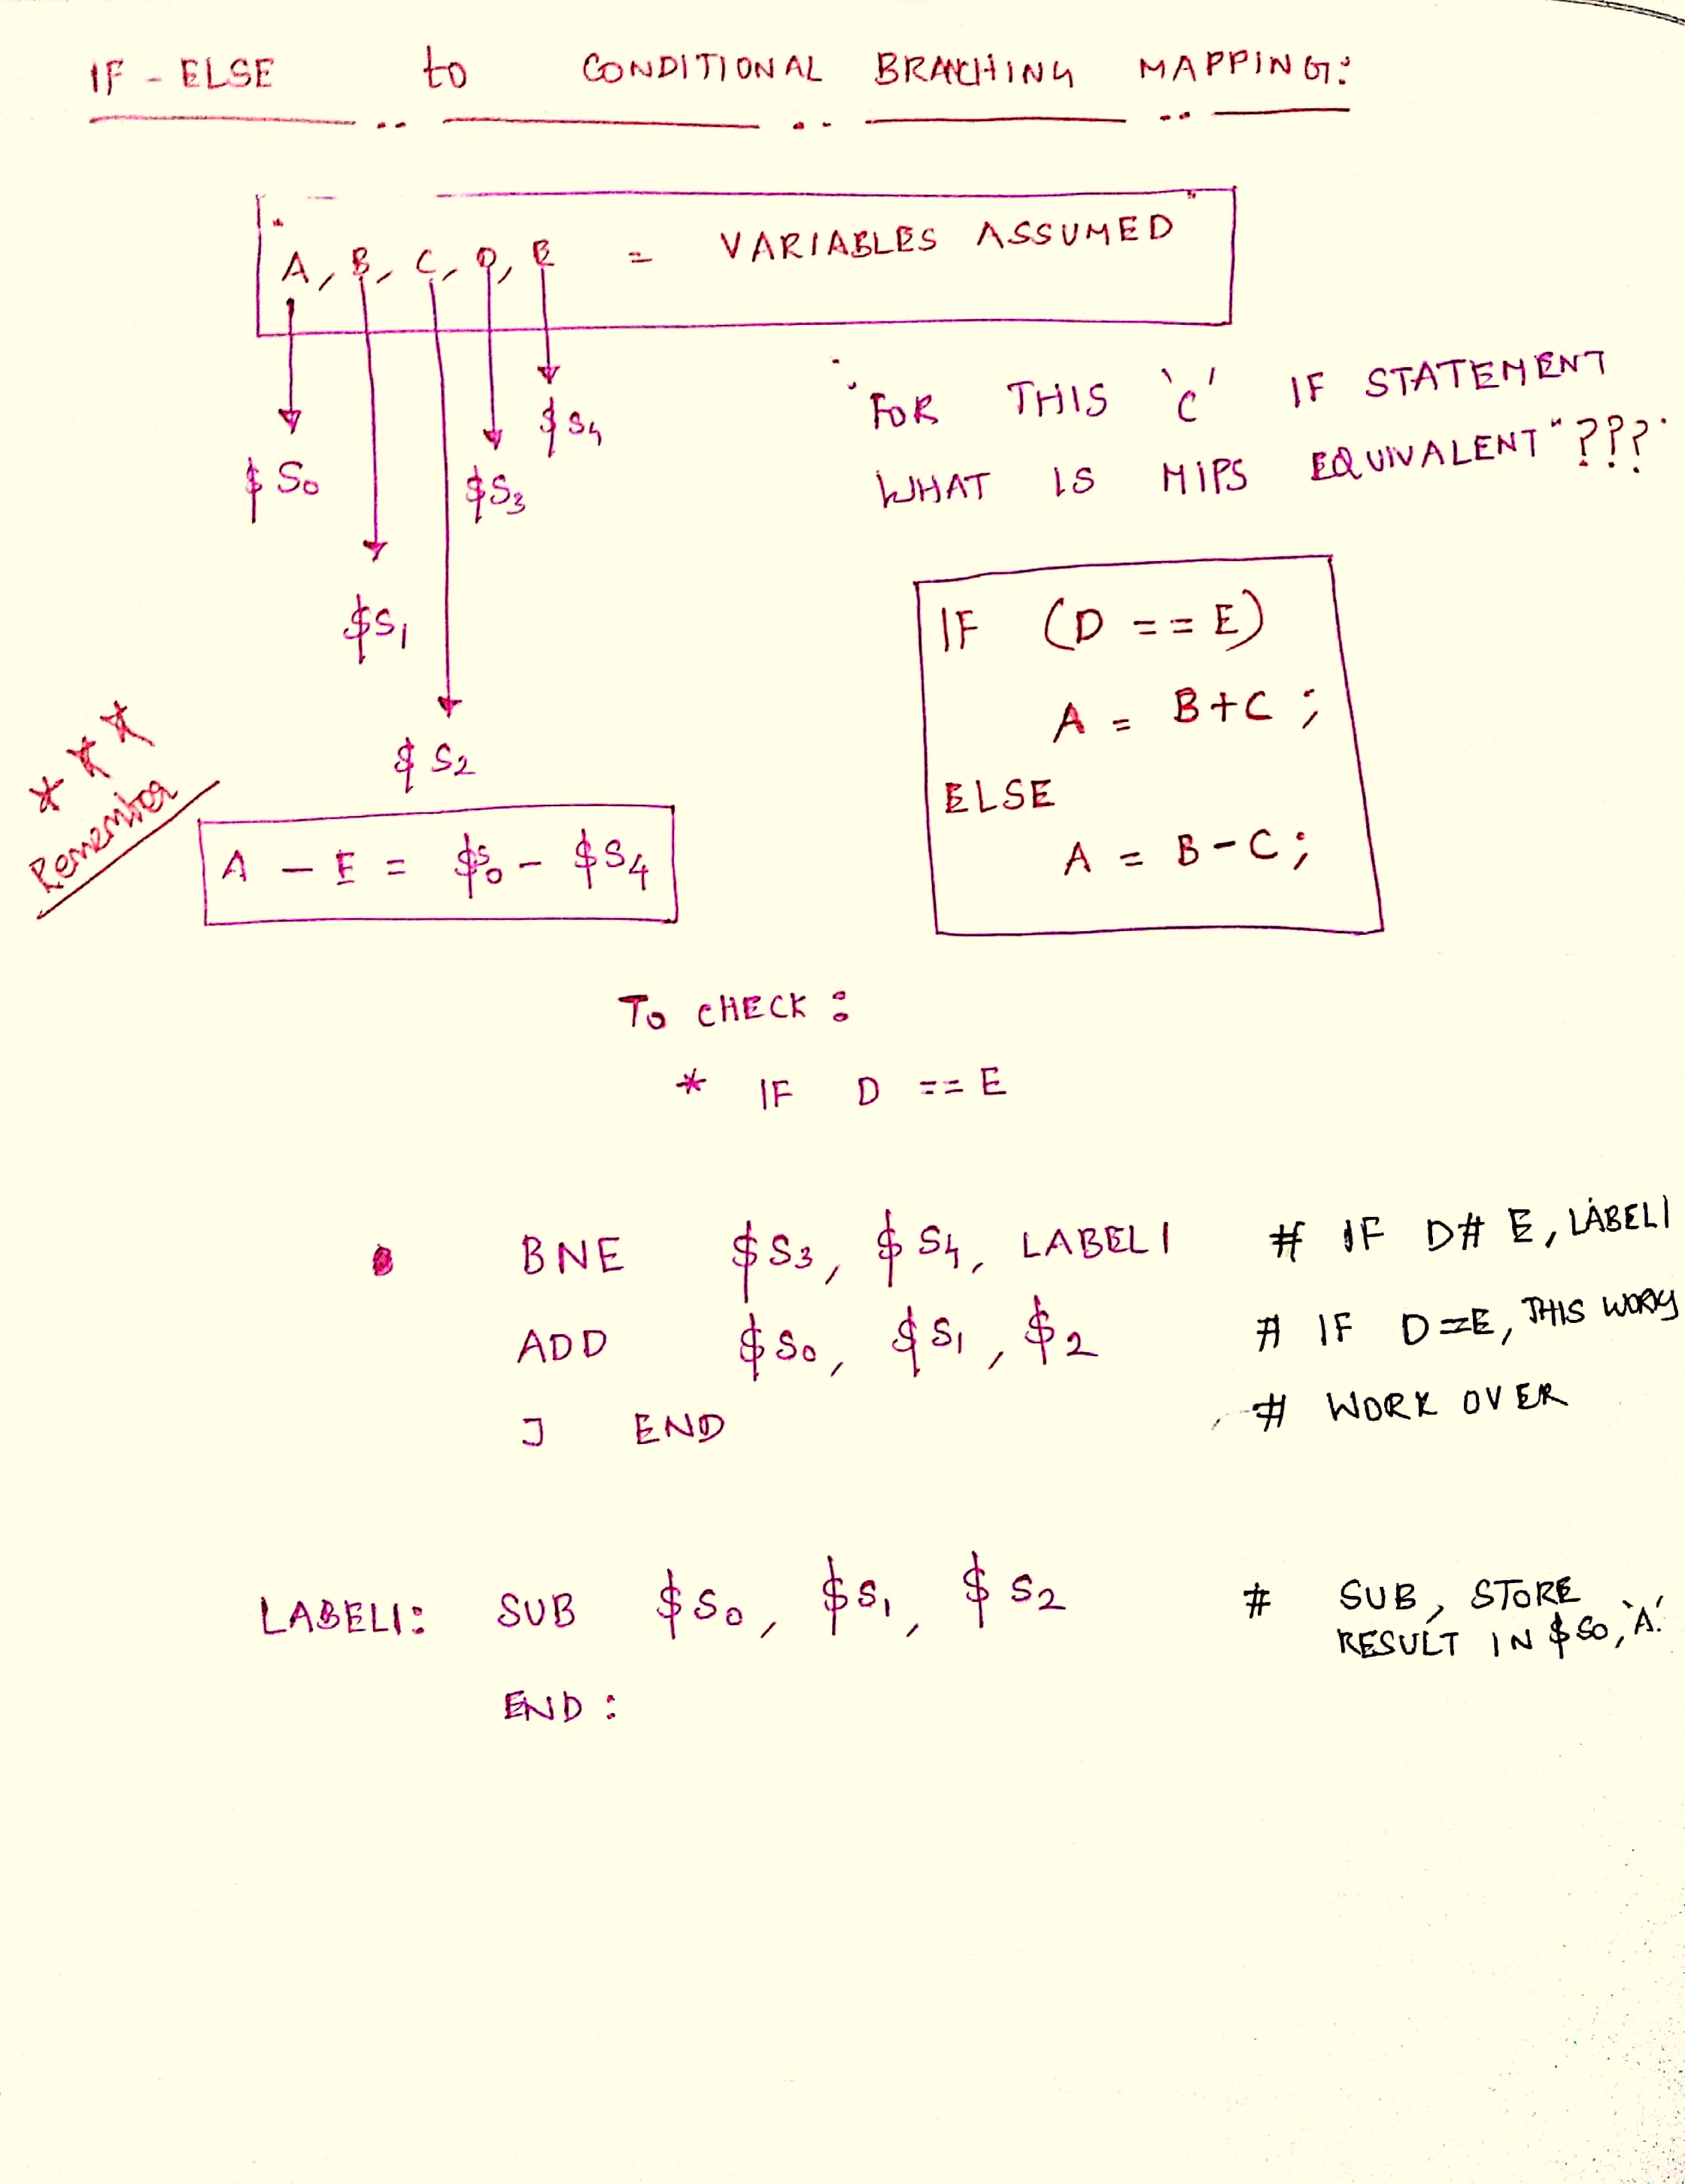 IF - ELSE to CONDITIONAL BRANCHING MAPPING:
"A, B, C, D, E = VARIABLES ASSUMED"
$S4
$S0
$S3
$S1
$S2
"FOR THIS 'C' IF STATEMENT
WHAT IS MIPS EQUIVALENT"???
IF (D == E)
A = B+C;
ELSE
A = B-C;
***
Remember
A - E = $S0 - $S4
TO CHECK:
* IF D == E
BNE $S3, $S4, LABEL1 # IF D# E, LABEL1
ADD $S0, $S1, $2 # IF D=E, THIS WORKS
J END # WORK OVER
LABEL1: SUB $S0, $S1, $S2 # SUB, STORE
RESULT IN $S0, 'A'.
END: